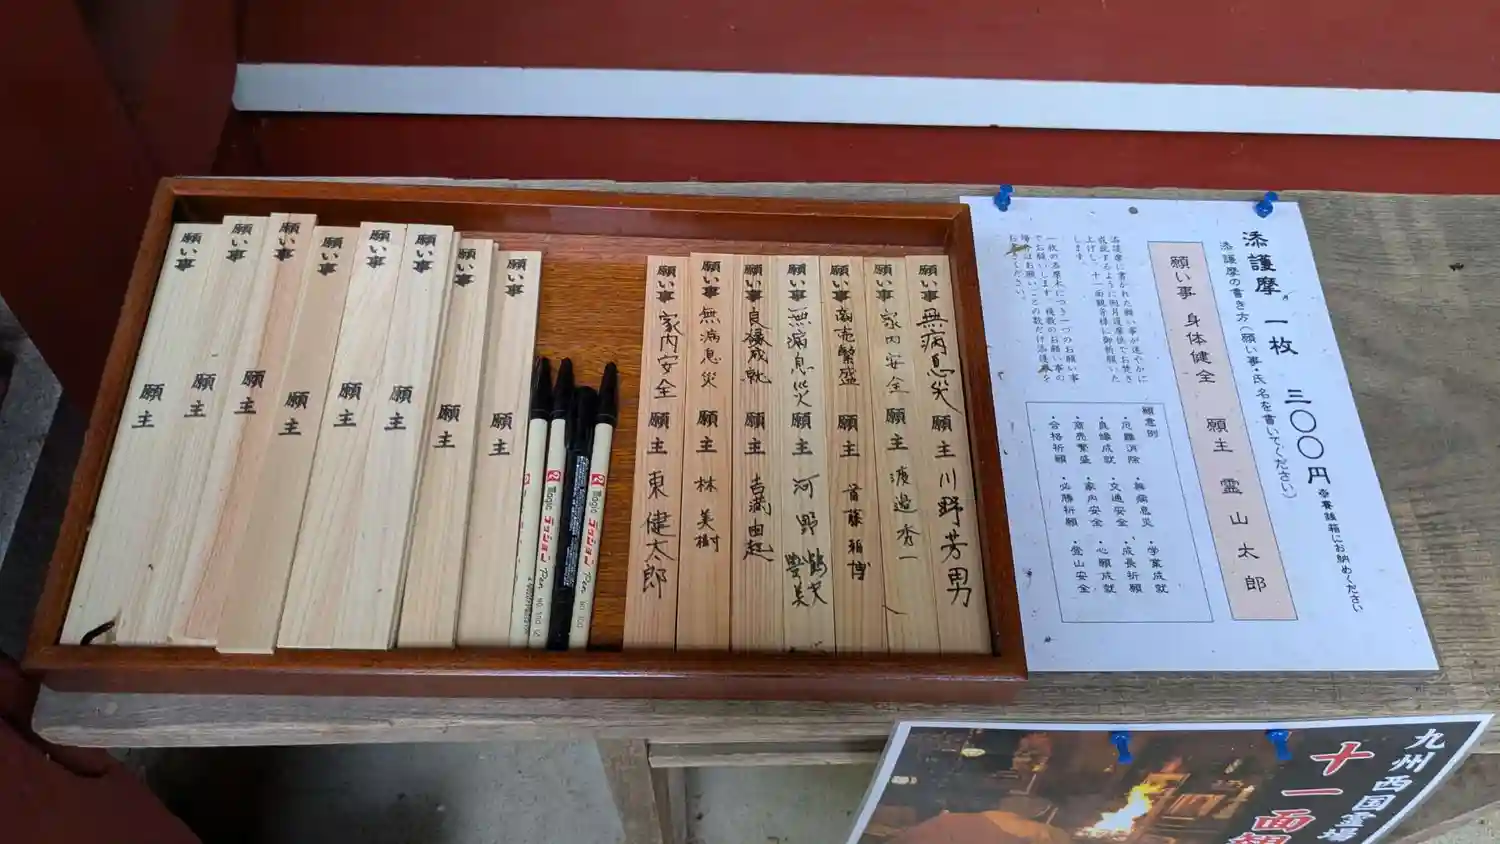 願い事 願主
願い事 願主
願い事 願主
願い事 願主
願い事 願主
願い事 願主
願い事 願主
願い事 願主
Magic ラッションPen NO.300
願い事 家内安全 願主 東 健太郎
願い事 無病息災 願主 林 美樹
願い事 良縁成就 願主
願い事 無病息災 願主 河野
願い事 商売繁盛 願主 首藤
願い事 家内安全 願主 渡邉 秀一
願い事 無病息災 願主 川野芳男
添護摩 一枚 三〇〇円
※賽銭箱にお納めください
添護摩の書き方(願い事・氏名を書いてください)
願い事 身体健全 願主 霊山太郎
添護摩に書かれた願い事が速やかに
成就するように例月護摩供でお焚き
上げし、十一面観音様に御祈願いた
します。
一枚の添護摩木につき一つのお願い事
でお願いします。複数のお願い事の
場合はお願いごとの数だけ添護摩を
お書きください。
願意別
・厄難消除 ・無病息災 ・学業成就
・良縁成就 ・交通安全 ・成長祈願
・商売繁盛 ・家内安全 ・心願成就
・合格祈願 ・必勝祈願 ・登山安全
九州西国霊場
十一面観